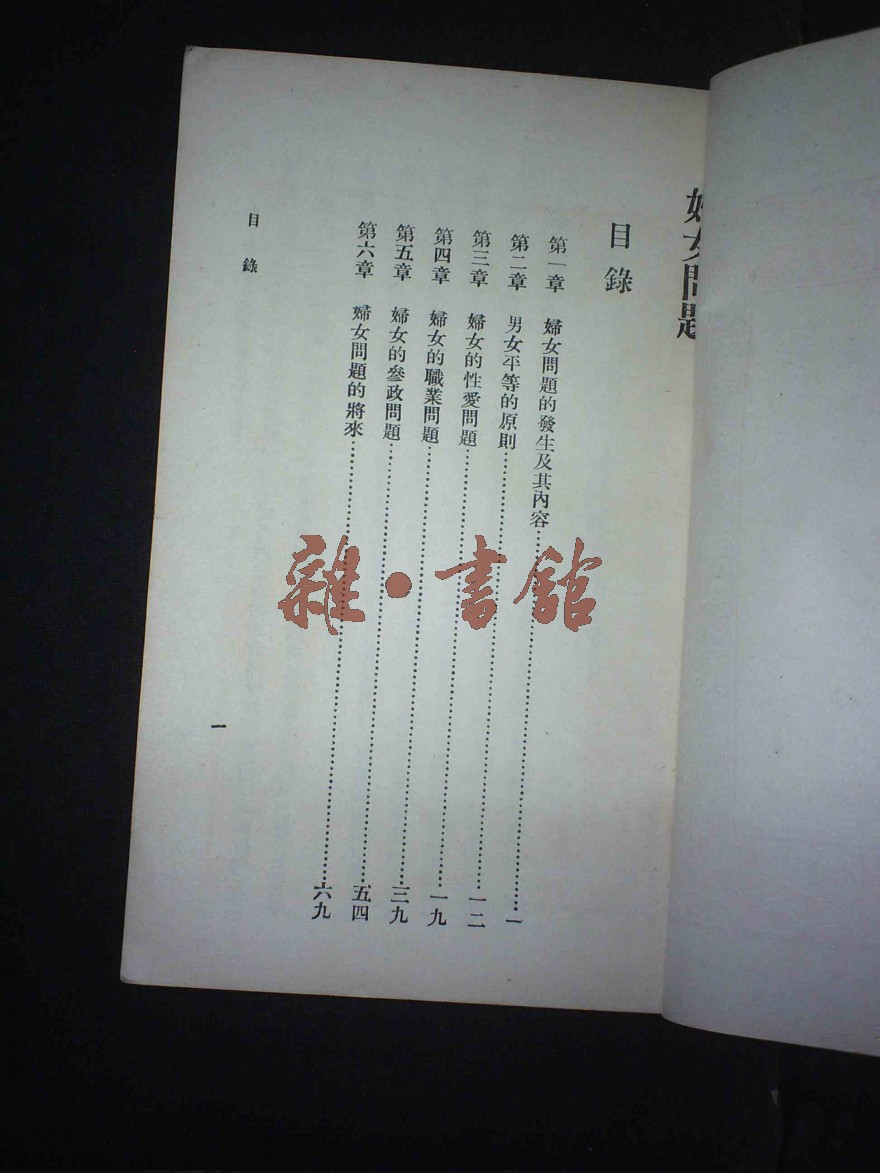 婦女問題
目錄
第一章 婦女問題的發生及其內容……一
第二章 男女平等的原則……一二
第三章 婦女的性愛問題……一九
第四章 婦女的職業問題……三九
第五章 婦女的參政問題……五四
第六章 婦女問題的將來……六九
目錄
一
雜·書館